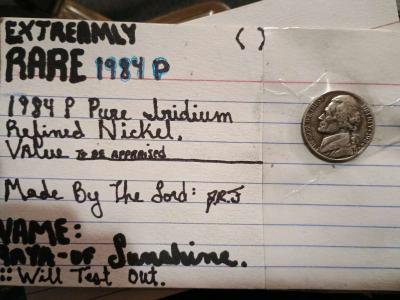 EXTREAMLY ( )
RARE 1984 P
1984 P Pure Iridium
Refined Nickel.
Value TO BE APPRAISED
Made By The Lord: J.R.J
NAME:
-OF Sunshine.
:: Will Test Out.